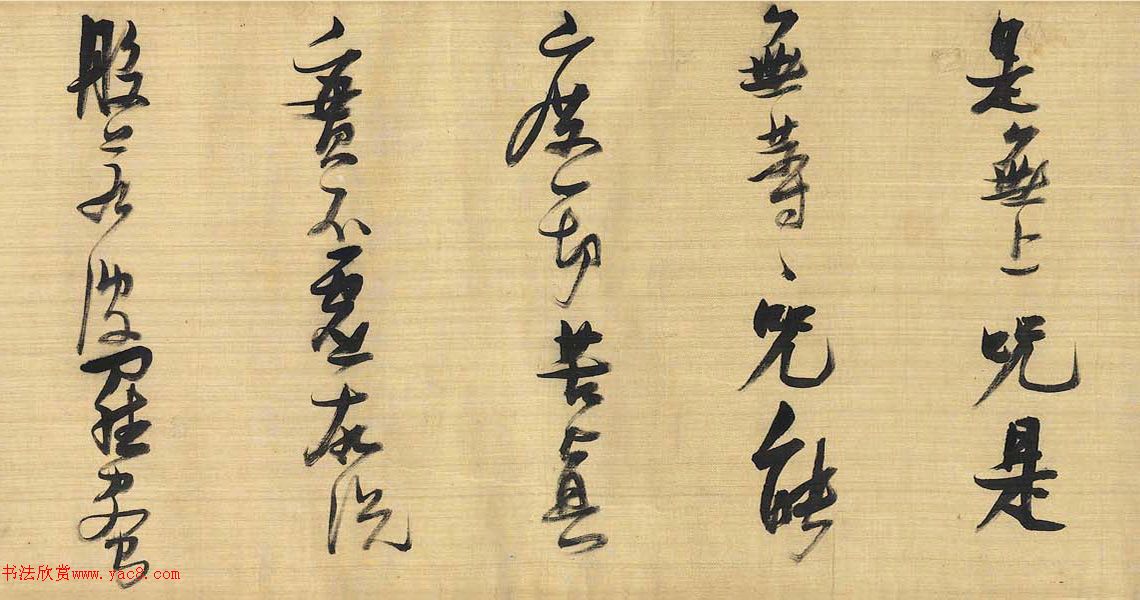 是無上呪是
無等々呪能
除一切苦真
實不虛故說
般若波羅蜜
书法欣赏www.yac8.com